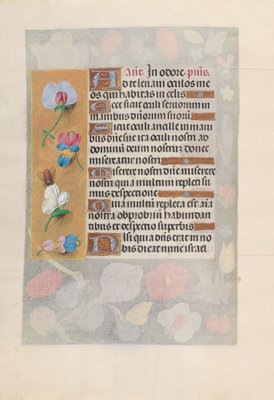 Añ. In odore. psalmus.
Ad te levavi oculos meos
qui habitas in celis.
Ecce sicut oculi servorum in
manibus dñorum suoru͂.
Sicut oculi ancille in mani
bus dñe sue ita oculi nostri ad
dominũ deum nostrũ donec
misereatur nostri.
Miserere nostri dñe miserere
nostri quia multum repleti su
mus despectione.
Quia multũ repleta est aĩa
nostra obprobriũ habundan
tibus et despectio superbis.
Nisi quia dñs erat in no
bis dicat nunc israel